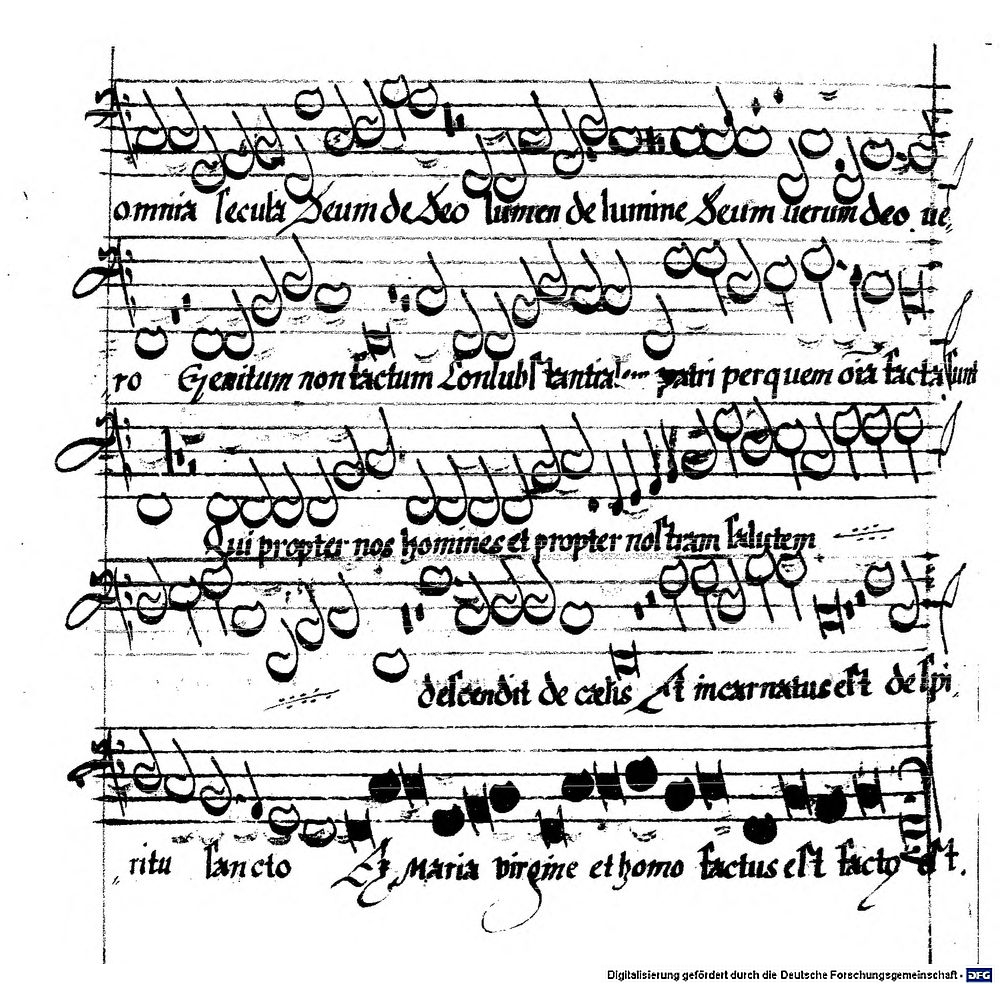 omnia secula Deum de Deo lumen de lumine Deum uerum deo ue
ro Genitum non factum Consubstantialem patri per quem oīa facta sunt
Qui propter nos homines et propter nostram salutem
descendit de cælis Et incarnatus est de spi
ritu sancto Ex Maria virgine et homo factus est facto est.
Digitalisierung gefördert durch die Deutsche Forschungsgemeinschaft - DFG